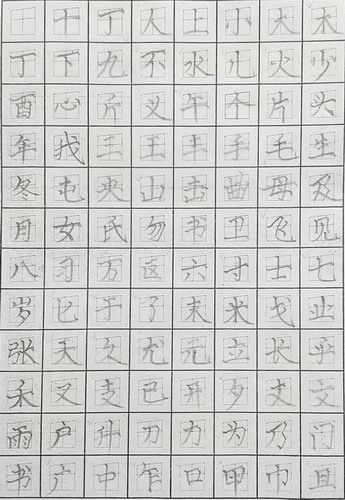 十 丁 人 上 小 大 木
丁 下 九 不 水 儿 火 少
酉 心 片 义 午 个 片 头
年 找 三 王 丰 手 毛 生
冬 屯 央 山 击 曲 母 及
月 女 民 勿 书 卫 飞 见
八 习 万 区 六 寸 士 七
岁 匕 于 了 末 米 戈 止
张 天 久 尤 元 立 长 乎
禾 又 支 已 开 夕 丈 文
雨 户 升 刀 力 为 乃 门
书 广 中 乍 口 甲 巾 且